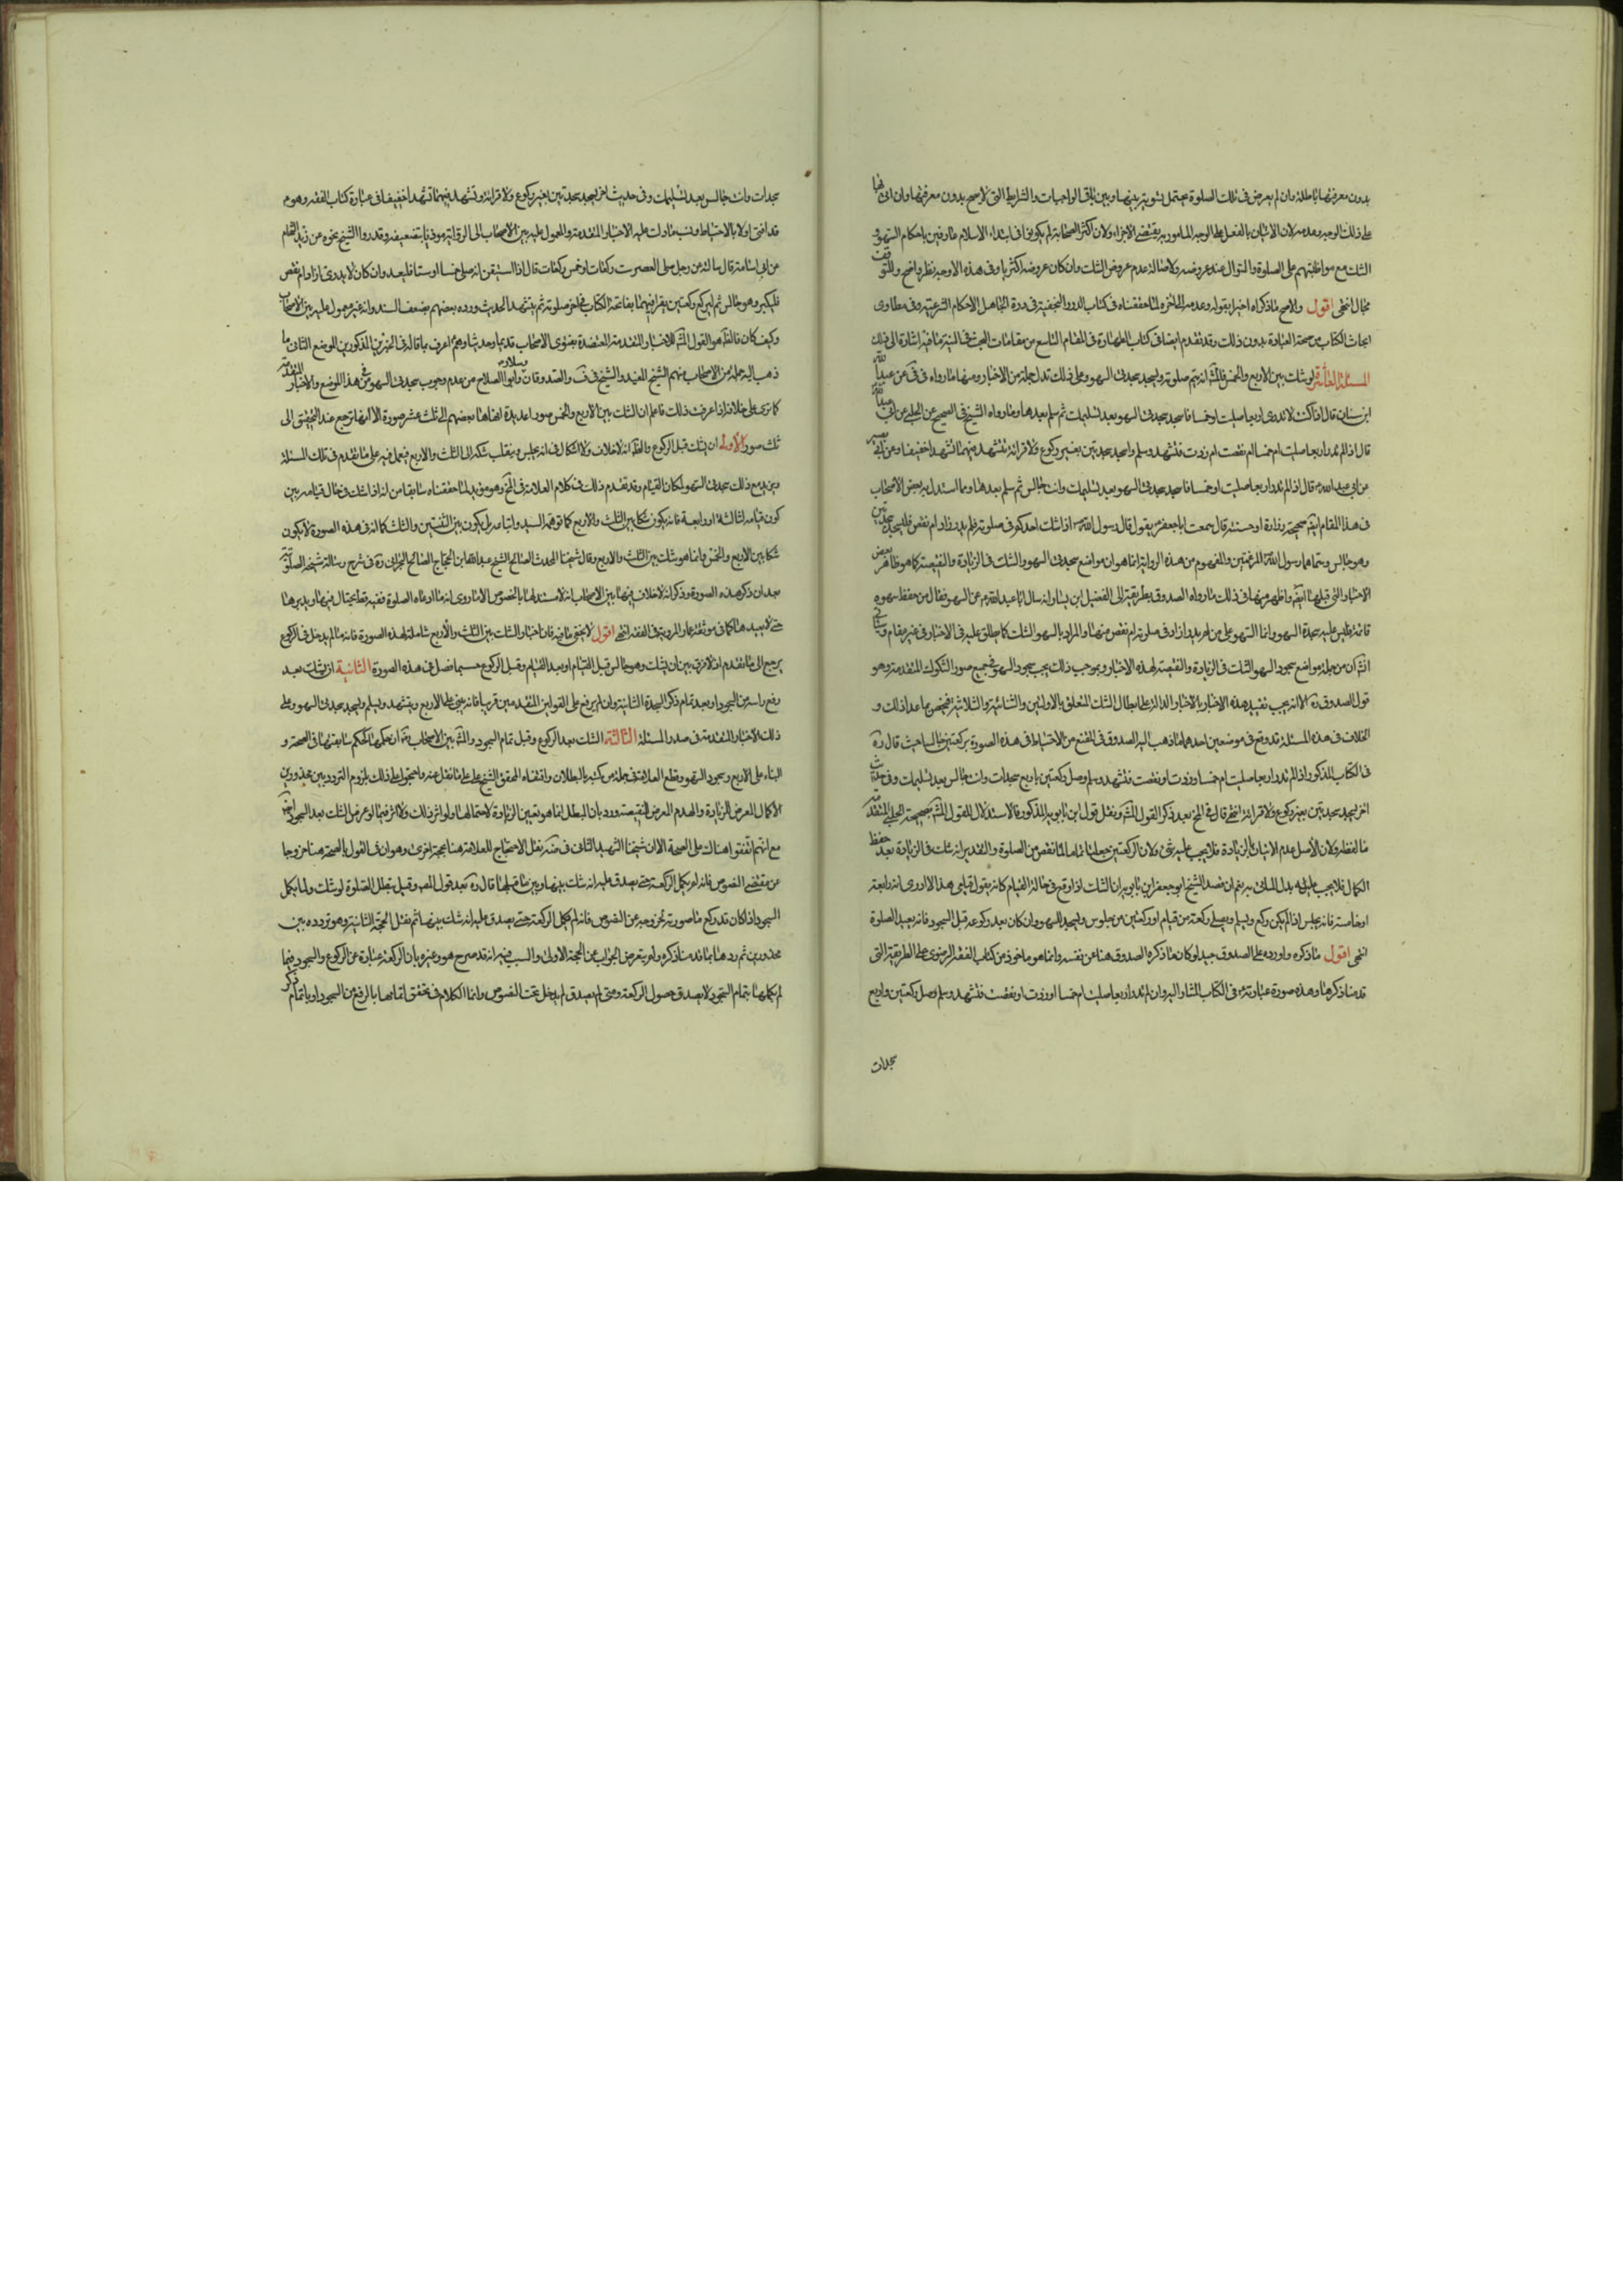 بدون معرفتها باطلة وان لم يعرض فى تلك الصلوة يحتمل لتسويته بينها وبين باقى الواجبات والشرايط التى لا تصح بدون معرفتها وان اتى بها
على ذلك الوجه وعدمه لان الاتيان بالفعل على الوجه المأمور به يقتضى الاجزاء ولان اكثر الصحابة لم يكونوا فى ابتداء الاسلام عارفين باحكام السهو و
الشك مع مواظبتهم على الصلوة والنوافل عند عروضه ولاصالة عدم عروض الشك وان كان عروضه اكثريا وفى هذه الاوجه نظر واضح وللتوقف
مجال انتهى اقول والاصح ما ذكراه اخيرا بقوله وعدمه الخ لما حققناه فى كتاب الدرر النجفية فى درة الجاهل بالاحكام الشرعية وفى مطاوى
ابحاث الكتاب من صحة العبادة بدون ذلك وقد تقدم ايضا فى كتاب الطهارة فى المقام التاسع من مقامات البحث فى النية ما فيه اشارة الى ذلك
المسئلة العاشرة لو شك بين الاربع والخمس فالمشهور انه يتم صلوته ويسجد سجدتى السهو وعلى ذلك تدل جملة من الاخبار ومنها ما رواه فى فى عن عبد الله
ابن سنان قال اذا كنت لا تدرى اربعا صليت او خمسا فاسجد سجدتى السهو بعد تسليمك ثم سلم بعدها وما رواه الشيخ فى الصحيح عن الحلبى عن ابى عبد الله
قال اذا لم تدر اربعا صليت ام خمسا ام نقصت ام زدت فتشهد وسلم واسجد سجدتين بغير ركوع ولا قرائة تتشهد فيهما تشهدا خفيفا وعن ابى بصير
عن ابى عبد الله قال اذا لم تدر اربعا صليت او خمسا فاسجد سجدتى السهو بعد تسليمك وانت جالس ثم سلم بعدها ومما استدل به بعض الاصحاب
فى هذا المقام ايضا صحيحة زرارة او حسنته قال سمعت ابا جعفر يقول قال رسول الله اذا شك احدكم فى صلوته فلم يدر زاد ام نقص فليسجد سجدتين
وهو جالس وسماهما رسول الله المرغمتين والمفهوم من هذه الرواية انما هو ان مواضع سجدتى السهو والشك فى الزيادة والنقيصة كما هو ظاهر بعض
الاخبار التى قبلها ايضا واظهر منها فى ذلك ما رواه الصدوق بطريقه الى الفضيل ابن يسار انه سال ابا عبد الله عن السهو فقال من حفظ سهوه
فاتمه فليس عليه سجدة السهو وانما السهو على من لم يدر ازاد فى صلوته ام نقص منها والمراد بالسهو الشك كما يطلق عليه فى الاخبار فى غير مقام وسياتى
انشا ان من جملة مواضع سجود السهو الشك فى الزيادة والنقيصة لهذه الاخبار وبموجب ذلك يجب سجود السهو فى جميع صور الشكوك المتقدمة وهو
قول الصدوق ره الا انه يجب تقييد هذه الاخبار بالاخبار الدالة على ابطال الشك المتعلق بالاولتين والثنائية والثلاثية فيختص بما عدا ذلك و
الخلاف فى هذه المسئلة قد وقع فى موضعين احدهما ما ذهب اليه الصدوق فى المقنع من الاحتياط فى هذه الصورة بركعتين جالسا حيث قال ره
فى الكتاب المذكور اذا لم تدر اربعا صليت ام خمسا او زدت او نقصت فتشهد وسلم وصل ركعتين باربع سجدات وانت جالس بعد تسليمك وفى حديث
اخر يسجد سجدتين بغير ركوع ولا قرائة انتهى قال فى المخ بعد ذكر القول المشهور ونقل قول ابن بابويه المذكور فالاستدلال للقول المشهور بصحيحة الحلبى المتقدمة
ما لفظه ولان الاصل عدم الاتيان بالزيادة فلا يجب عليه شئ ولان الركعتين جعلتا تماما لما نقص من الصلوة والتقدير انه شك فى الزيادة بعد حفظ
الكمال فلا يجب عليه بدل الماتى به نعم ان قصد الشيخ ابو جعفر ابن بابويه ان الشك اذا وقع فى حالة القيام كانه يقول قيامى هذا لا ادرى انه رابعة
او خامسة فانه يجلس اذا لم يكن ركع ويسلم ويصلى ركعة من قيام او ركعتين من جلوس ويسجد للسهو وان كان بعد ركوعه قبل السجود فانه يعيد الصلوة
انتهى اقول ما ذكره واورده على الصدوق جيد لو كان ما ذكره الصدوق هنا عن نفسه وانما هو ماخوذ من كتاب الفقه الرضوى على الطريقة التى
قدمنا ذكرها وهذه صورة عبارته فى الكتاب المشار اليه وان لم تدر اربعا صليت ام خمسا او زدت او نقصت فتشهد وسلم وصل ركعتين واربع
سجدات
سجدات وانت جالس بعد تسليمك وفى حديث اخر يسجد سجدتين بغير ركوع ولا قرائة وتشهد فيهما تشهدا خفيفا فى عبارة كتاب الفقه وهو
قد افتى اولا بالاحتياط ونسب ما دلت عليه الاخبار المتقدمة والمعمول عليه بين الاصحاب الى الرواية موذنا بتضعيفه وقد روا الشيخ نحوه عن زيد الشحام
عن ابى اسامة قال سالته عن رجل صلى العصر ست ركعات او خمس ركعات قال اذا استيقن انه صلى خمسا او ستا فليعد وان كان لا يدرى ازاد ام نقص
فليكبر وهو جالس ثم ليركع ركعتين يقرا فيهما بفاتحة الكتاب فى اخر صلوته ثم يتشهد الحديث ورده بعضهم بضعف السند وانه غير معمول عليه بين الاصحاب
وكيف كان فالظاهر هو القول المشهور للاخبار المتقدمة المعتضدة بفتوى الاصحاب قديما وحديثا ولم اعرف بما قاله فى الخبرين المذكورين الموضع الثانى ما
ذهب اليه جملة من الاصحاب منهم الشيخ المفيد والشيخ فى ف والصدوقان وسلار وابو الصلاح من عدم وجوب سجدتى السهو فى هذا الموضع والاخبار المتقدمة
كما ترى على خلافه اذا عرفت ذلك فاعلم ان الشك بين الاربع والخمس صورا عديدة انهاها بعضهم الى ثلث عشر صورة الا انها ترجع عند التحقيق الى
ثلث صور الاولى ان يشك قبل الركوع والظاهر انه لا خلاف ولا اشكال فى انه يجلس وينقلب شكه الى الثلث والاربع فيعمل فيه على ما تقدم فى تلك المسئلة
ويزيد مع ذلك سجدتى السهو لمكان القيام وقد تقدم ذلك فى كلام العلامة فى المخ وهو مويد لما حققناه سابقا من انه اذا شك فى حال قيامه بين
كون قيامه لثالثة او رابعة فانه يكون شكا بين الثلث والاربع كما توهمه السيد واتباعه بل يكون بين الثنتين والثلث كما انه فى هذه الصورة لا يكون
شكا بين الاربع والخمس وانما هو شك بين الثلث والاربع وقال شيخنا المحدث الصالح الشيخ عبد الله ابن الحاج صالح البحرانى ره فى شرح رسالة شيخه الصلوتية
بعد ان ذكر هذه الصورة وذكر انه لا خلاف فيها بين الاصحاب انه لا مستند لها بالخصوص الا ما روى انه ما اعاد الصلوة فقيه قط يحتال فيها ويدبرها
حتى لا يعيدها كما فى موثقة عمار المروية فى الفقيه انتهى اقول لا يخفى ما فيه فان اخبار الشك بين الثلث والاربع شاملة لهذه الصورة فانه ما لم يدخل فى الركوع
يرجع الى ما تقدم اذ لا فرق بين ان يشك وهو جالس قبل القيام او بعد القيام وقبل الركوع حسبما فصل فى هذه الصورة الثانية ان يشك بعد
رفع راسه من السجود او بعد تمام ذكر السجدة الثانية وان لم يرفع على القولين المتقدمين قريبا فانه يبنى على الاربع ويتشهد ويسلم ويسجد سجدتى السهو وعلى
ذلك الاخبار المتقدمة فى صدر المسئلة الثالثة الشك بعد الركوع وقبل تمام السجود والمشهور بين الاصحاب ان حكمها كحكم سابقتها فى الصحة و
البناء على الاربع وسجود السهو وقطع العلامة فى جملة من كتبه بالبطلان واقتفاه المحقق الشيخ على على ما نقل عنه واحتجوا على ذلك بلزوم التردد بين محذورين
الاكمال المعرض للزيادة والهدم المعرض للنقيصة ورد بان المبطل انما هو تعيين الزيادة لا احتمالها ولو اثر ذلك لاثر فيما لو عرض الشك بعد السجود ايضا
مع انهم اتفقوا هناك على الصحة الا ان شيخنا الشهيد الثانى فى ضه نقل الاحتجاج للعلامة هنا بحجة اخرى وهو ان فى القول بالصحة هنا خروجا
عن مقتضى النصوص فانه لم يكمل الركعة حتى يصدق عليه انه شك بينها وبين ما قبلها قال ره بعد قول المصنف وقيل تبطل الصلوة لو شك ولما يكمل
السجود اذا كان قد ركع ما صورته لخروجه عن النصوص فانه لم يكمل الركعة حتى يصدق عليه انه شك بينهما ثم نقل الحجة الثانية وهو تردده بين
محذورين ثم ردها بما قدمنا ذكره ولم يتعرض للجواب عن الحجة الاولى والسبب فيه انه قد صرح هو وغيره بان الركعة عبارة عن الركوع والسجود فما
لم يكملها بتمام السجود لا يصدق حصول الركعة ومتى لم يصدق لم يدخل تحت النصوص وانما الكلام فى تحقق اتمامها بالرفع من السجود او باتمام ذكر